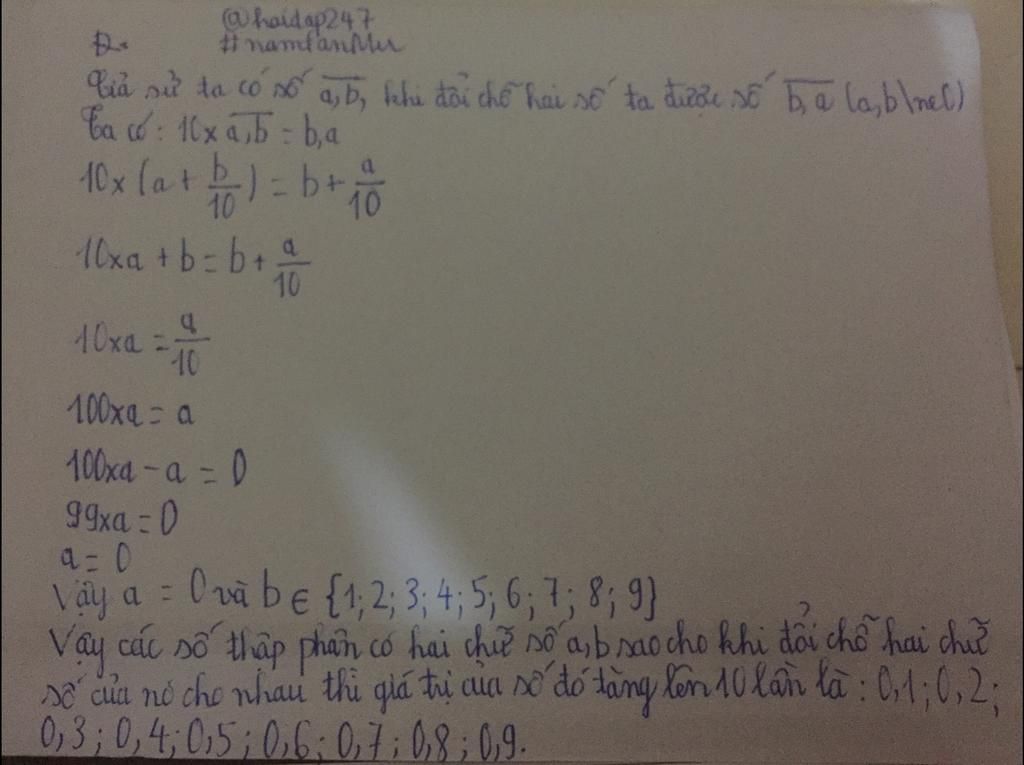 @hoidap247
Đ. #namtanMu
Giả sử ta có số a,b, khi đổi chỗ hai số ta được số b,a (a,b\ne0)
Ta có: 10×a,b = b,a
10×(a + b/10) = b + a/10
10×a + b = b + a/10
10×a = a/10
100×a = a
100×a - a = 0
99×a = 0
a = 0
Vậy a = 0 và b ∈ {1; 2; 3; 4; 5; 6; 7; 8; 9}
Vậy các số thập phân có hai chữ số a,b sao cho khi đổi chỗ hai chữ
số của nó cho nhau thì giá trị của số đó tăng lên 10 lần là : 0,1; 0,2;
0,3; 0,4; 0,5; 0,6; 0,7; 0,8; 0,9.